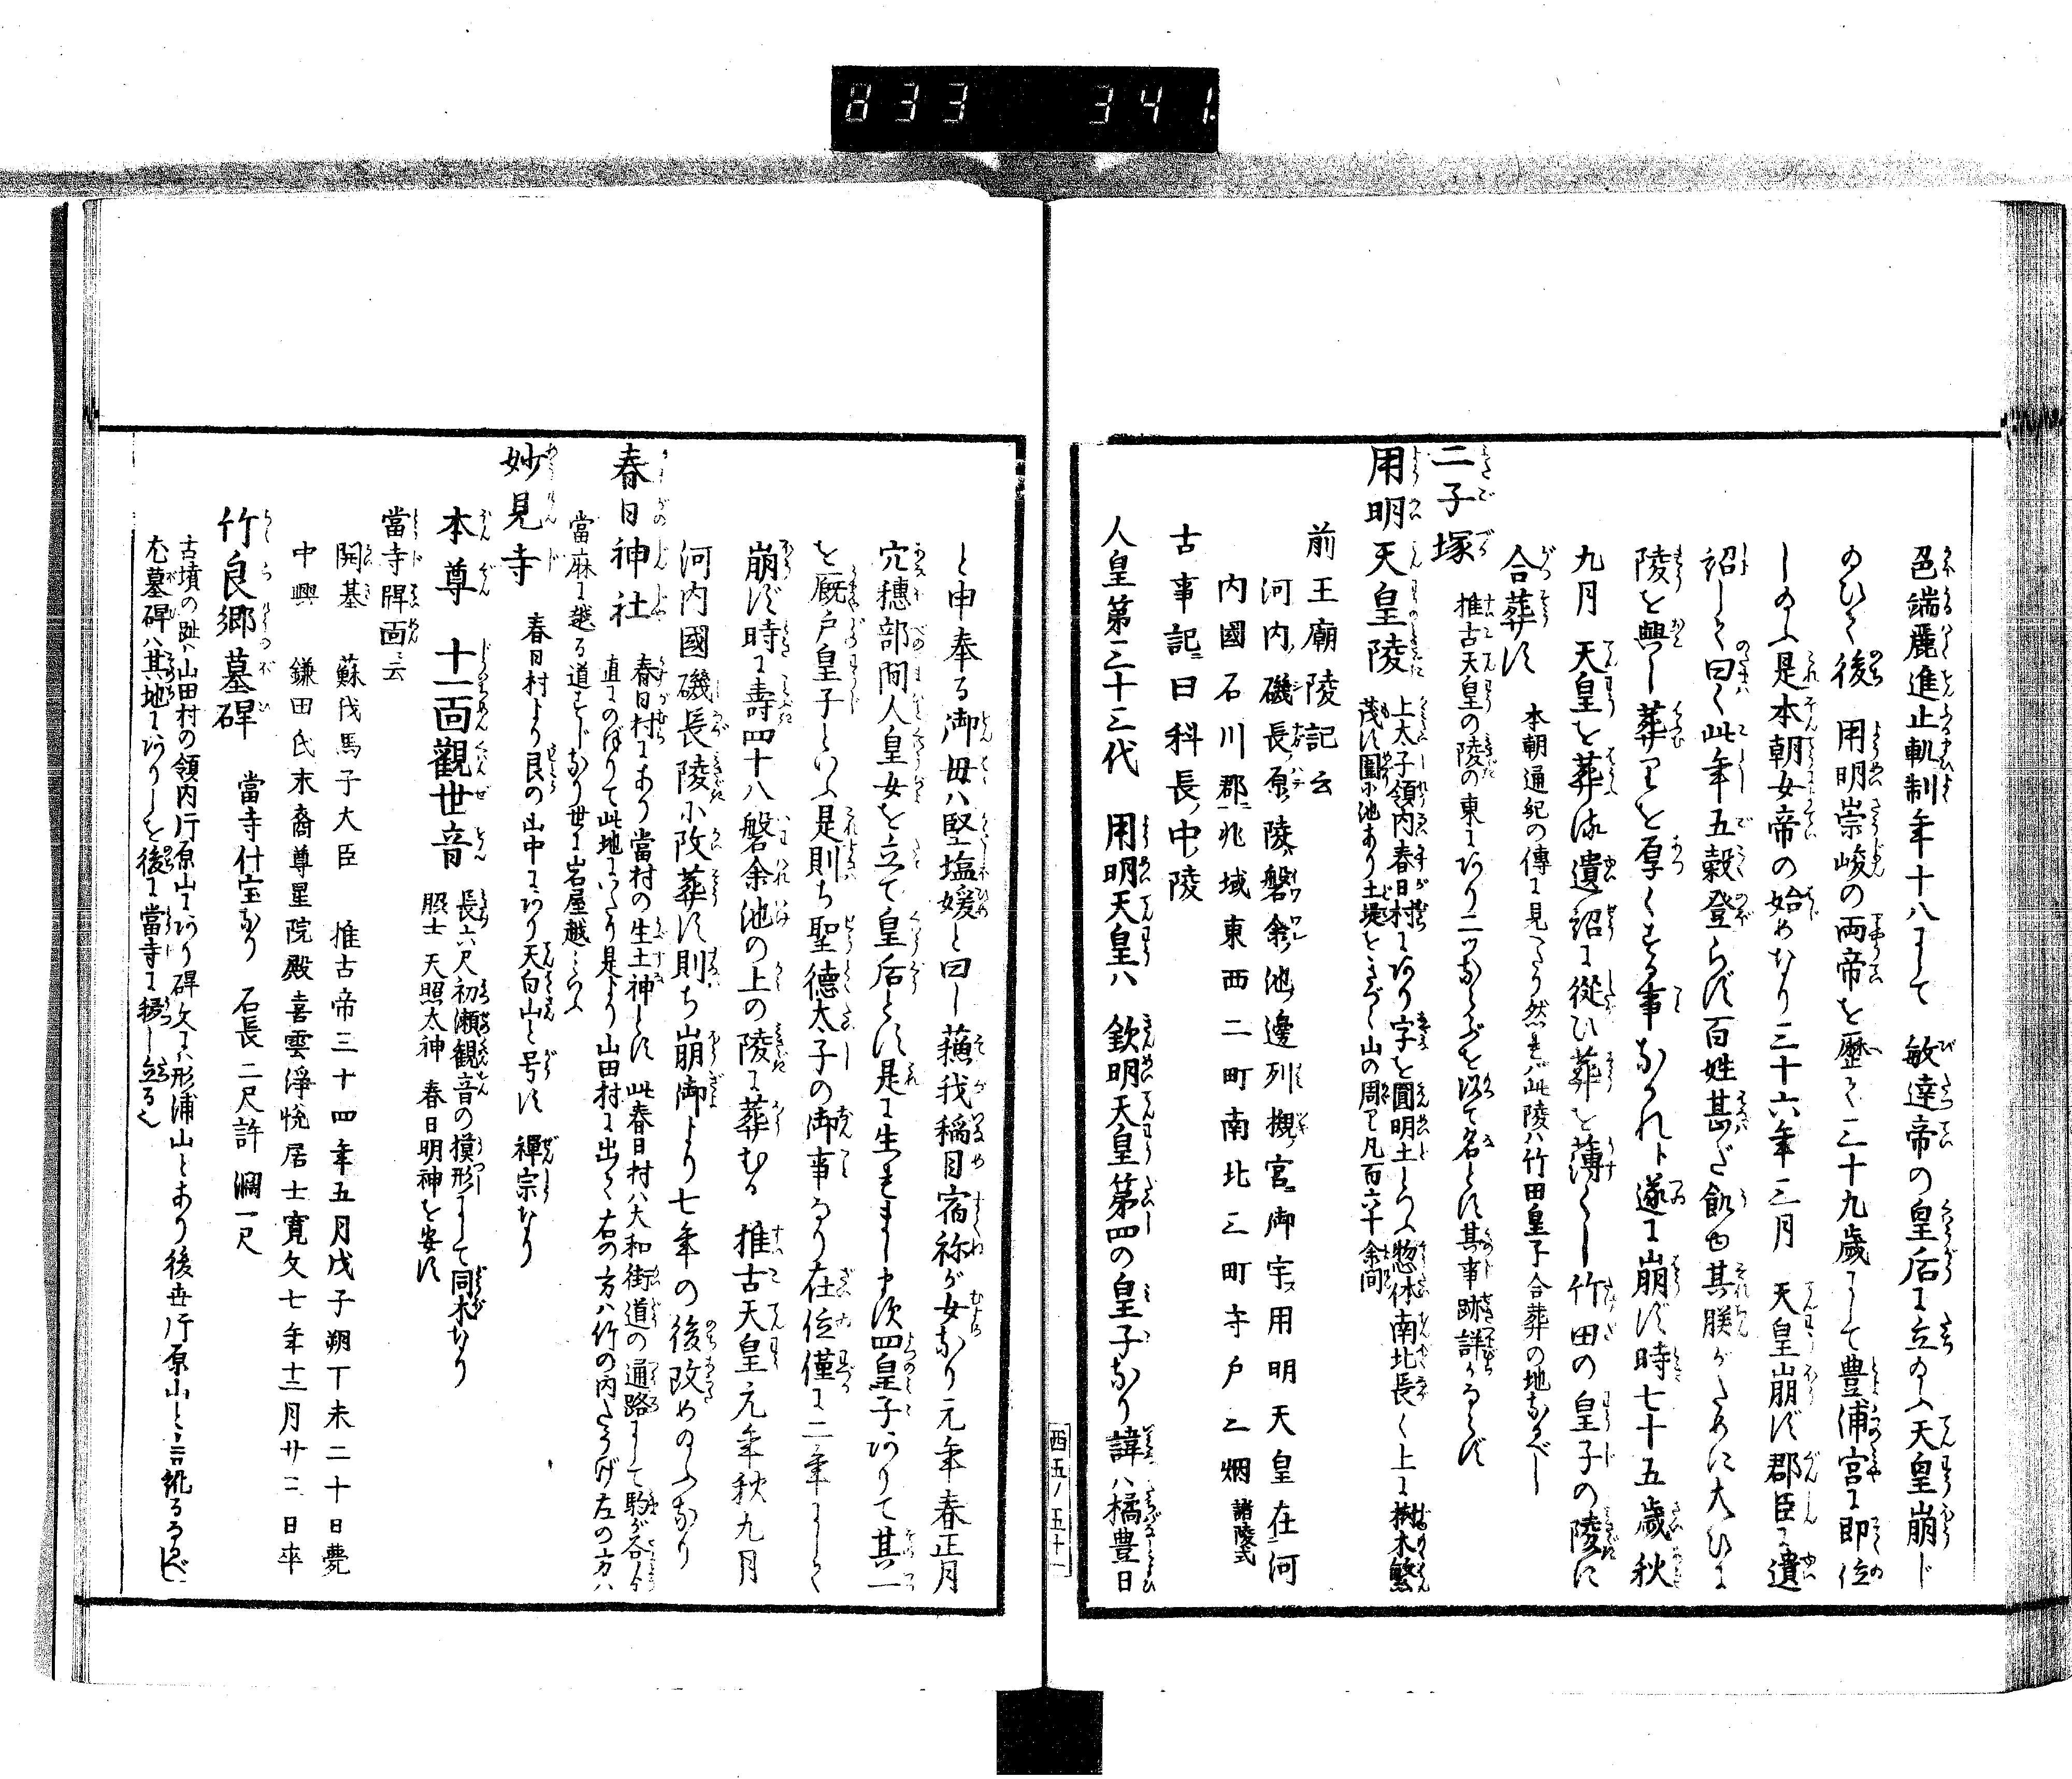 833 341.
邑端麗進止軌制年十八にして 敏達帝の皇后に立給ふ天皇崩じ
のひて後 用明崇峻の両帝を歴て三十九歳にして豊浦宮に即位
し給ふ是本朝女帝の始めなり三十六年三月 天皇崩ず郡臣に遺
詔して曰く此年五穀登らず百姓甚だ飢也其朕がために大ひに
陵を興し葬りを厚くする事なかれト遂に崩ず時七十五歳秋
九月 天皇を葬る遺詔に従ひ葬を薄くし竹田の皇子の陵に
合葬す 本朝通紀の傳に見へたり然れば此陵ハ竹田皇子合葬の地なるべし
二子塚 推古天皇の陵の東にあり二ツならぶを以て名とす其事跡詳かならず
用明天皇陵 上太子領内春日村にあり字を圓明土といふ惣体南北長く上に樹木繁
茂す圍に池あり土堤をきづく山の周り凡百六十余間
前王廟陵記云
河内磯長原陵磐余池邊列槻宮御宇用明天皇在河
内國石川郡兆域東西二町南北三町守戸三烟 諸陵式
古事記曰科長中陵
人皇第三十二代 用明天皇ハ 欽明天皇第四の皇子なり諱ハ橘豊日
西五ノ五十一
と申奉る御母ハ堅塩媛と曰し蘓我稲目宿祢が女なり元年春正月
穴穗部間人皇女を立て皇后とす是に生せまし中頃四皇子ありて其一
を厩戸皇子といふ是則ち聖徳太子の御事なり在位僅に二年にして
崩ず時に壽四十八磐余池の上の陵に葬むる 推古天皇元年秋九月
河内國磯長陵に改葬す則ち崩御より七年の後改めのふなり
春日神社 春日村にあり當村の生土神とす 此春日村ハ大和街道の通路にして駒が谷より
直にのぼりて此地にいたり是より山田村に出て右の方ハ竹の内たうげ左の方ハ
當麻に越る道すじなり世に岩屋越といふ
妙見寺 春日村より艮の山中にあり天白山と号す 禪宗なり
本尊 十一面觀世音 長六尺初瀬観音の摸形にして同木なり
照士 天照太神 春日明神を安ず
當寺牌面ニ云
開基 蘇我馬子大臣 推古帝三十四年五月戊子朔丁未二十日薨
中興 鎌田氏末裔尊星院殿喜雲淨悦居士寛文七年十二月廿二日卒
竹良郷墓碑 當寺什宝なり 石長二尺許 濶一尺
古墳の趾ハ山田村の領内片原山にあり碑文に形浦山とあり後世片原山と言訛るなるべし
尤墓碑ハ其地にありしを後に當寺に移し立るべし